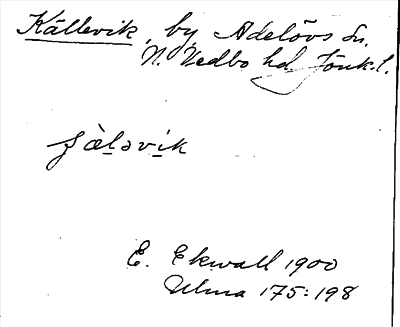 Källevik, by Adelövs sn.
N. Vedbo hd Jönk. l.
ʃæ̀ləvik
E. Ekwall 1900
Ulma 175:198